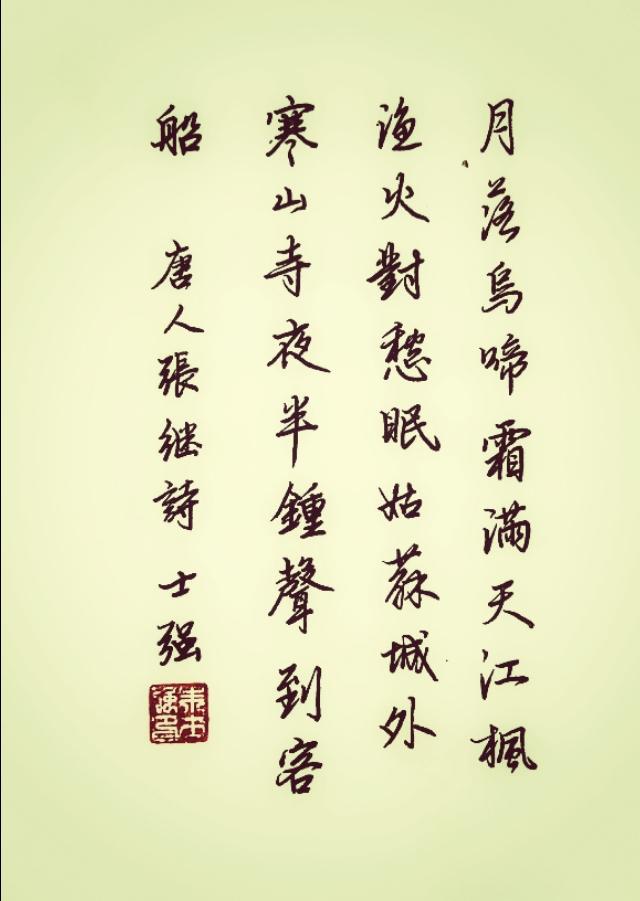 月落烏啼霜滿天江楓
漁火對愁眠姑蘇城外
寒山寺夜半鍾聲到客
船 唐人張继詩 士强